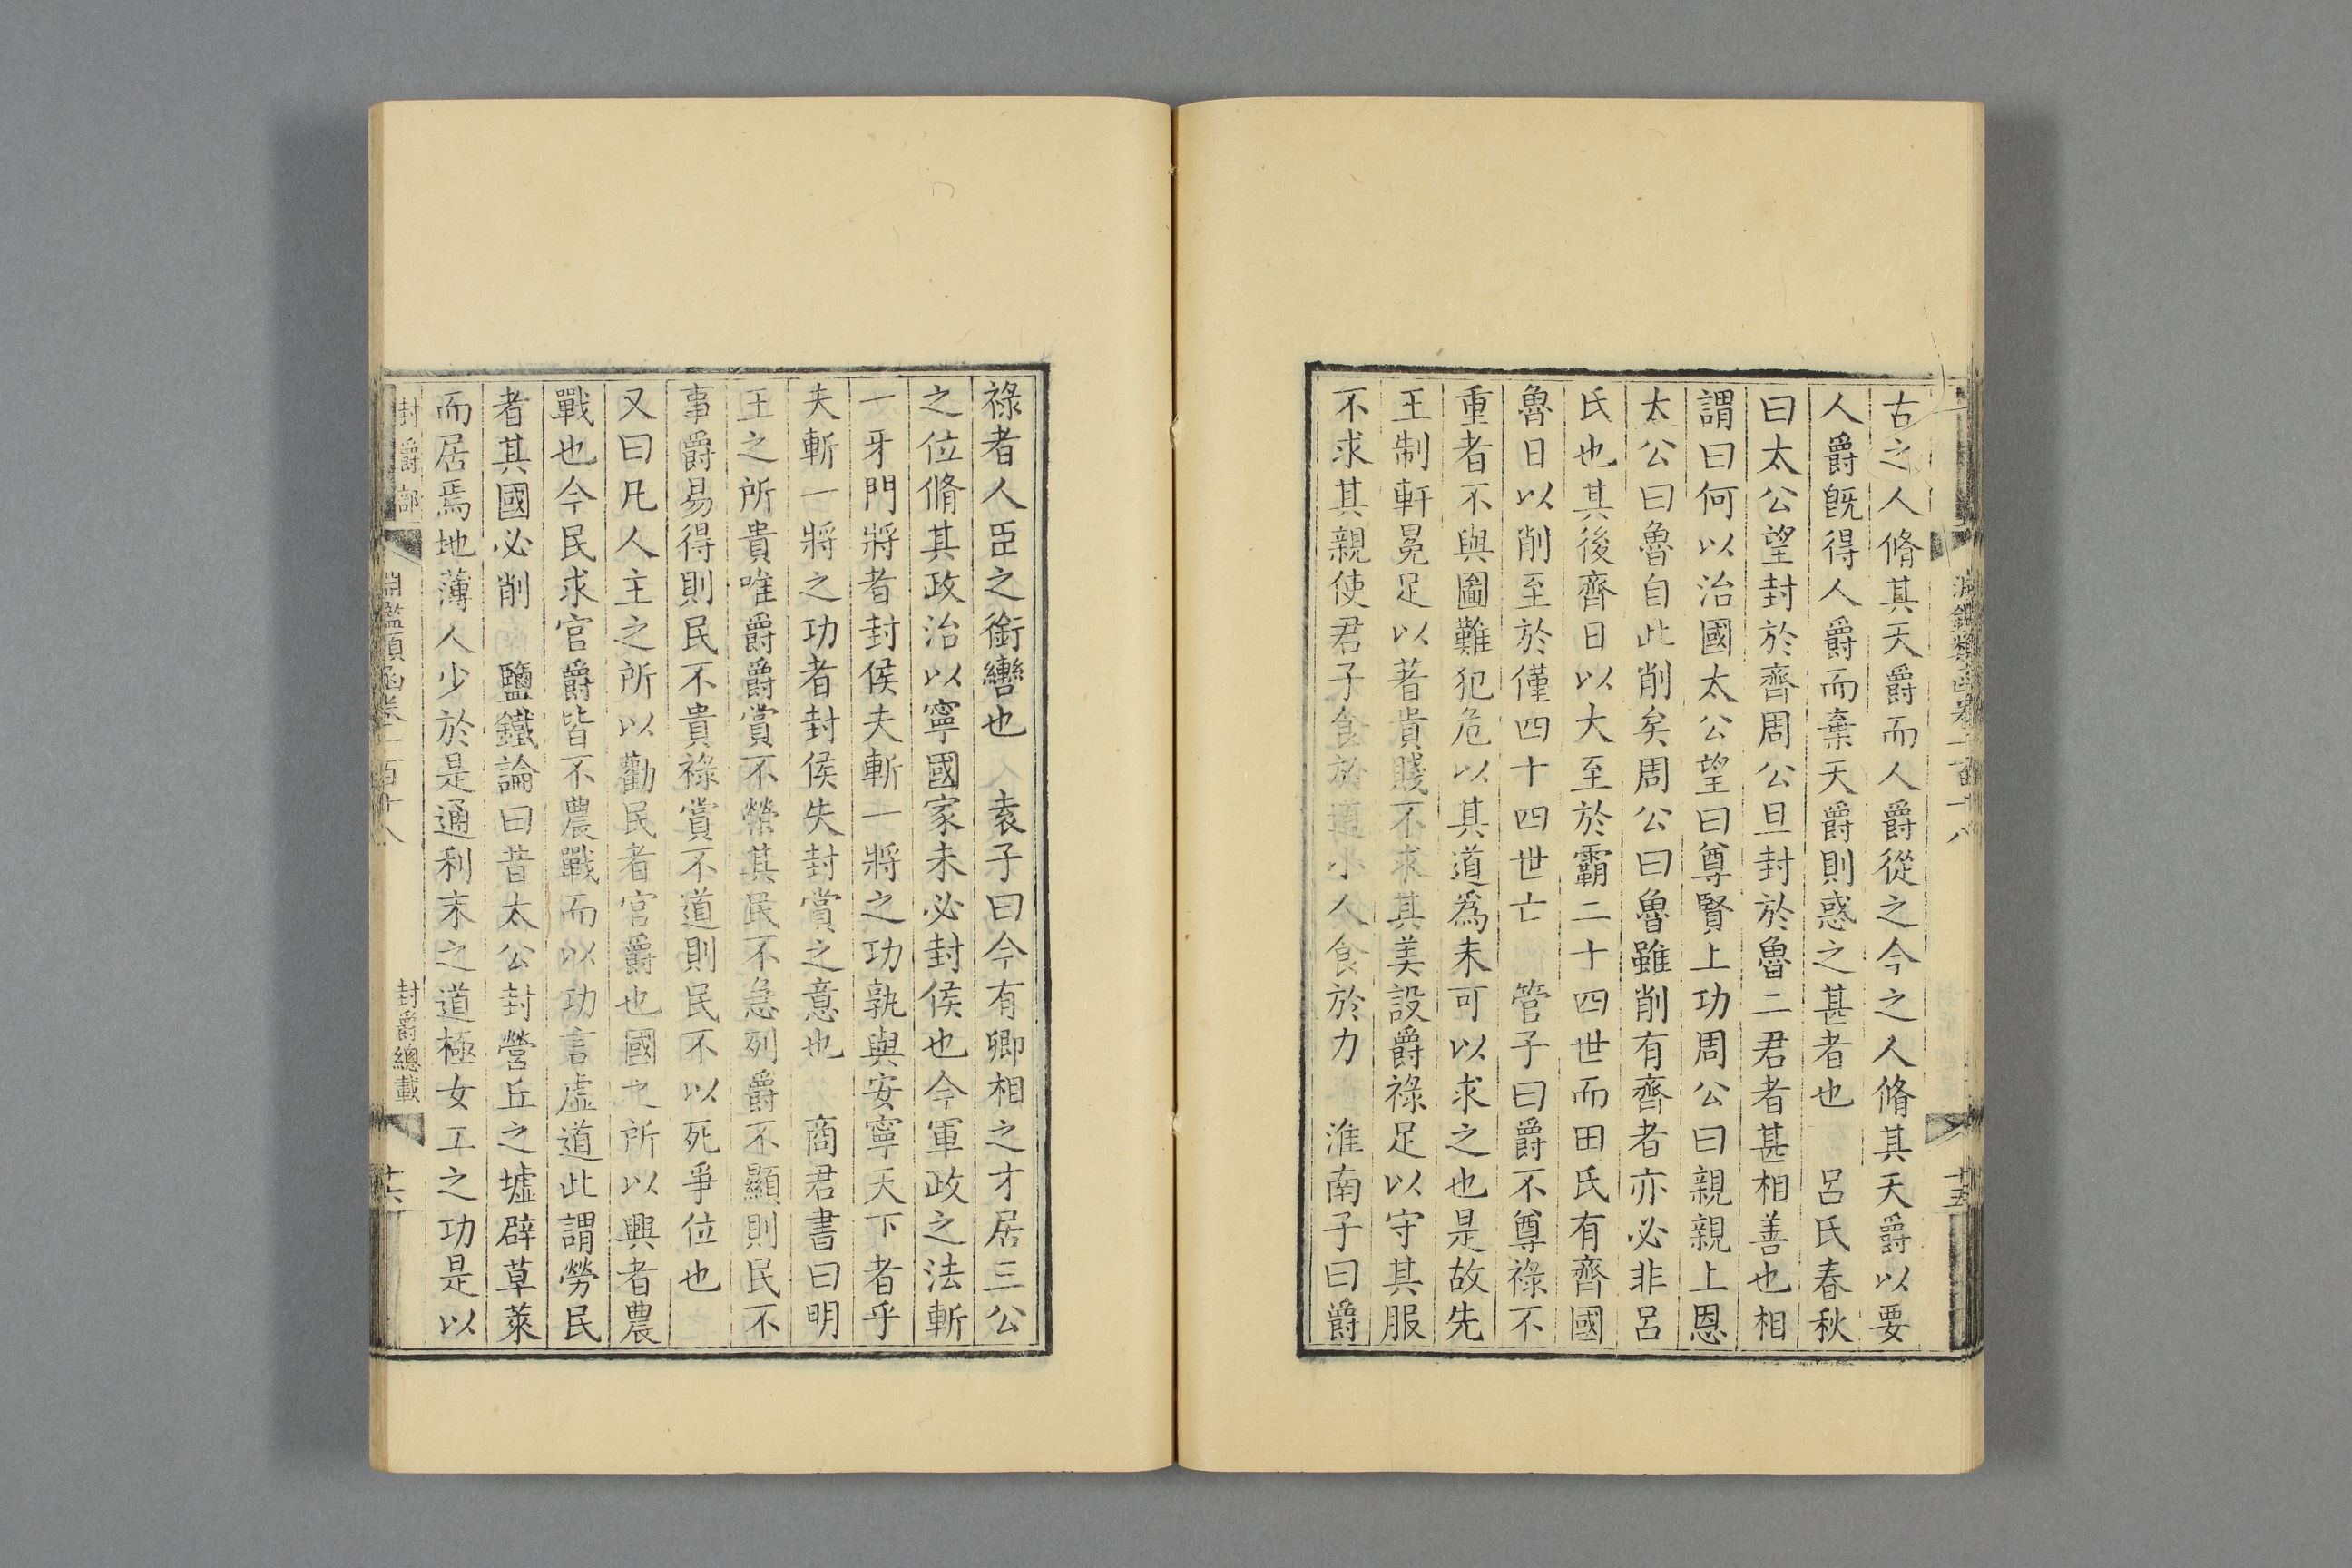 淵鑑類函卷一百十八
十五
古之人脩其天爵而人爵從之今之人脩其天爵以要
人爵旣得人爵而棄天爵則惑之甚者也 呂氏春秋
曰太公望封於齊周公旦封於魯二君者甚相善也相
謂曰何以治國太公望曰尊賢上功周公曰親親上恩
太公曰魯自此削矣周公曰魯雖削有齊者亦必非呂
氏也其後齊日以大至於霸二十四世而田氏有齊國
魯日以削至於僅四十四世亡 管子曰爵不尊祿不
重者不與圖難犯危以其道爲未可以求之也是故先
王制軒冕足以著貴賤不求其美設爵祿足以守其服
不求其親使君子食於道小人食於力 淮南子曰爵
祿者人臣之銜轡也 袁子曰今有卿相之才居三公
之位脩其政治以寧國家未必封侯也今軍政之法斬
一牙門將者封侯夫斬一將之功孰與安寧天下者乎
夫斬一將之功者封侯失封賞之意也 商君書曰明
王之所貴唯爵爵賞不榮其民不急列爵不顯則民不
事爵易得則民不貴祿賞不道則民不以死爭位也
又曰凡人主之所以勸民者官爵也國之所以興者農
戰也今民求官爵皆不農戰而以功言虛道此謂勞民
者其國必削 鹽鐵論曰昔太公封營丘之墟辟草萊
而居焉地薄人少於是通利末之道極女工之功是以
封爵部
淵鑑類函卷一百十八
封爵總載
十六